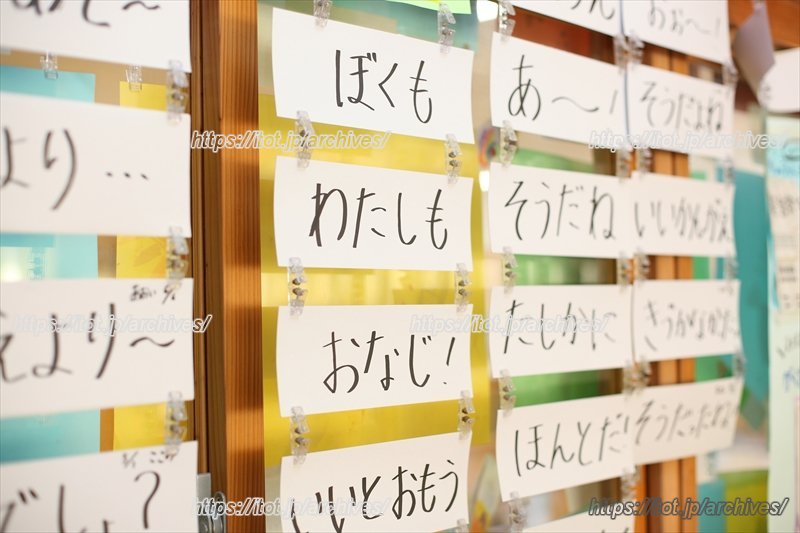 より…
えより〜
でしょ？
ぼくも
わたしも
おなじ！
いいとおもう
あ〜！
そうだね
たしかに
ほんとだ！
おぉ〜！
そうだよね
いいかんがえ
そうだったね
https://itot.jp/archives/
https://itot.jp/archives/
https://itot.jp/archives/
https://itot.jp/archives/
https://itot.jp/archives/
https://itot.jp/archives/
https://itot.jp/archives/